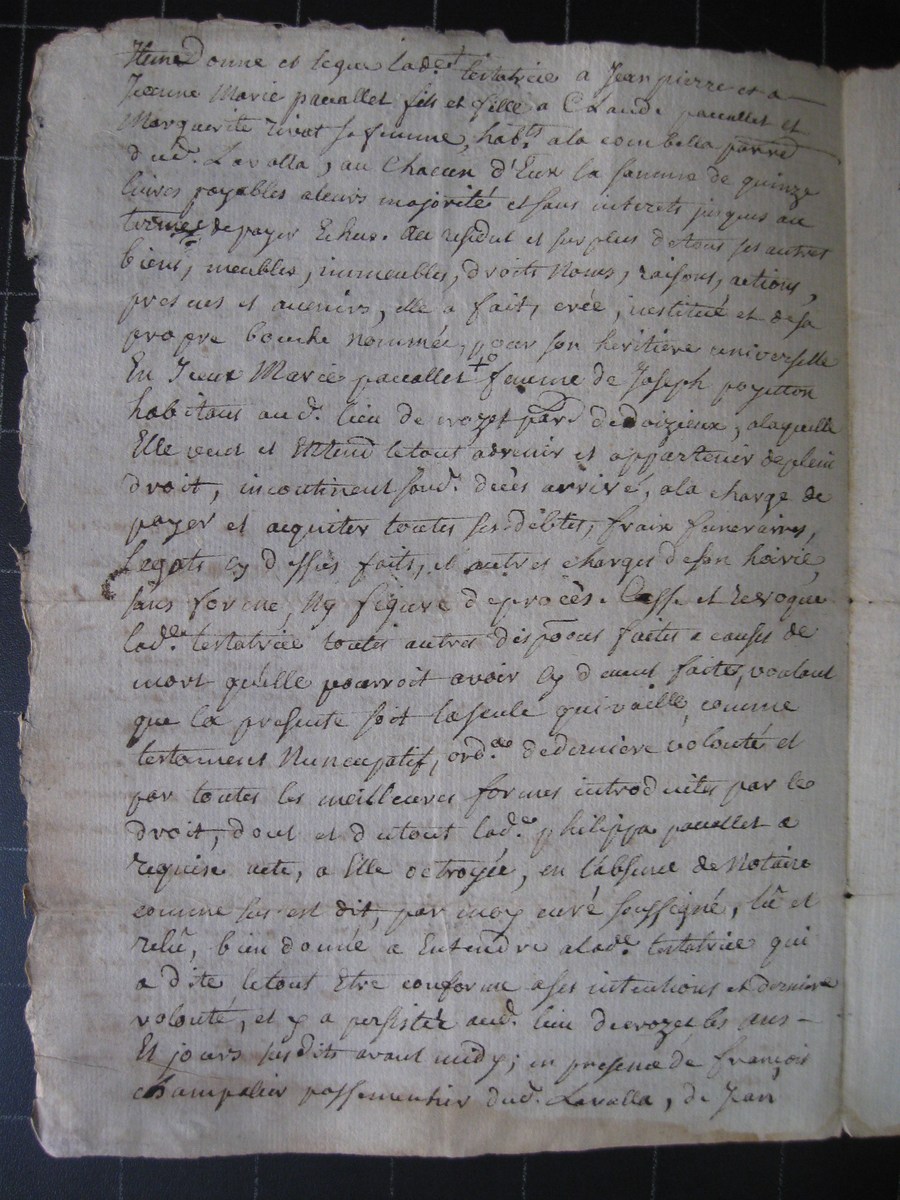 Item donne et legue lad.e testatrice a Jean pierre et a
Jeanne Marie pauallet fils et fille a Claude pauallet et
Marguerite rivat sa femme, hab.ts a la combella parre
dud. Lavalla, au Chacun d'Eux la somme de quinze
livres payables a leurs majorité et sans interets jusques au
terme de payer Echus. Au residut et surplus de tous ses autres
biens, meubles, immeubles, droits noms, raisons, actions,
presens et avenirs, elle a fait, créé, institué et de sa
propre bouche nommée, pour son heritiere universelle
En Jeane Marie pauallet + femme de Joseph payetton
habitans aud. lieu de crozet parre de doizieux, a laquelle
Elle veut et Entend le tout advenir et appartenir de plein
droit, incontinent sond. decès arrivé, a la charge de
payer et acquiter toutes ses debtes, fraix funeraires,
Legats cy dessus faits, et autres charges de son hoirie,
sans forme, ny figure de procès. Casse et revoque
lad.e testatrice toutes autres disp.ons faites a causes de
mort qu'elle pourroit avoir cy devant faites, voulant
que la presente soit la seule qui vaille, comme
testament Nuncupatif, ord.ce de derniere volonté et
par toutes les meilleures formes introduites par le
droit, dont et du tout lad.e philippa pauallet a
requise acte, a Elle octroyée, en l'absence de Notaire
comme sus est dit, par moy curé soussigné, lû et
relû, bien donnée a Entendre a lad.e testatrice qui
a dite le tout Etre conforme a ses intentions et derniere
volonté, et y a persistée aud. lieu de crozet les ans
Et jours susdits avant midy; en presence de françois
champalier passementier dud. Lavalla, de Jean